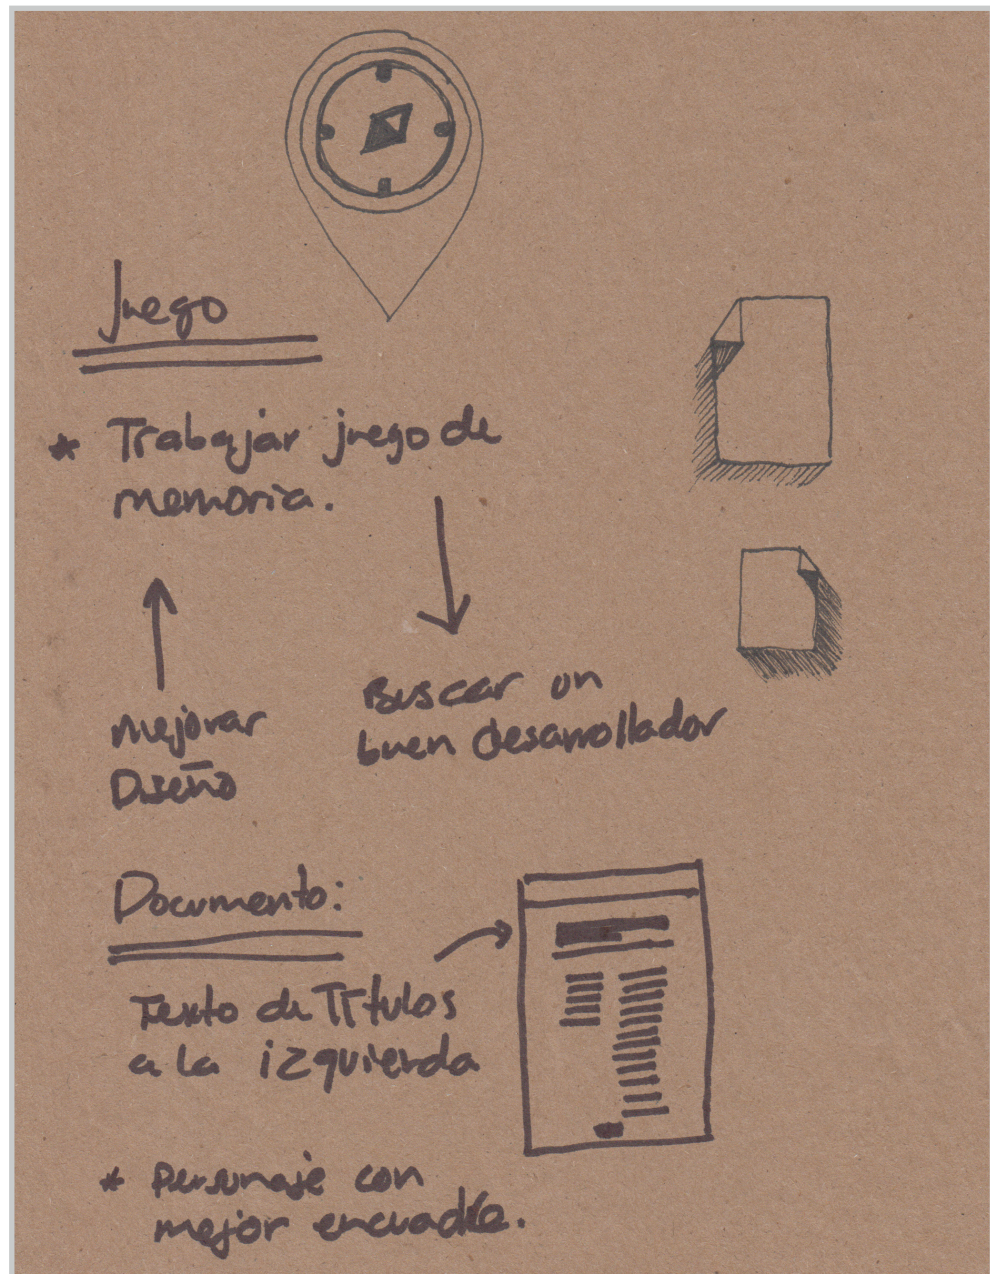 Juego
* Trabajar juego de
memoria.
mejorar
Diseño
Buscar un
buen desarrollador
Documento:
Texto de Títulos
a la izquierda
* Personaje con
mejor encuadre.